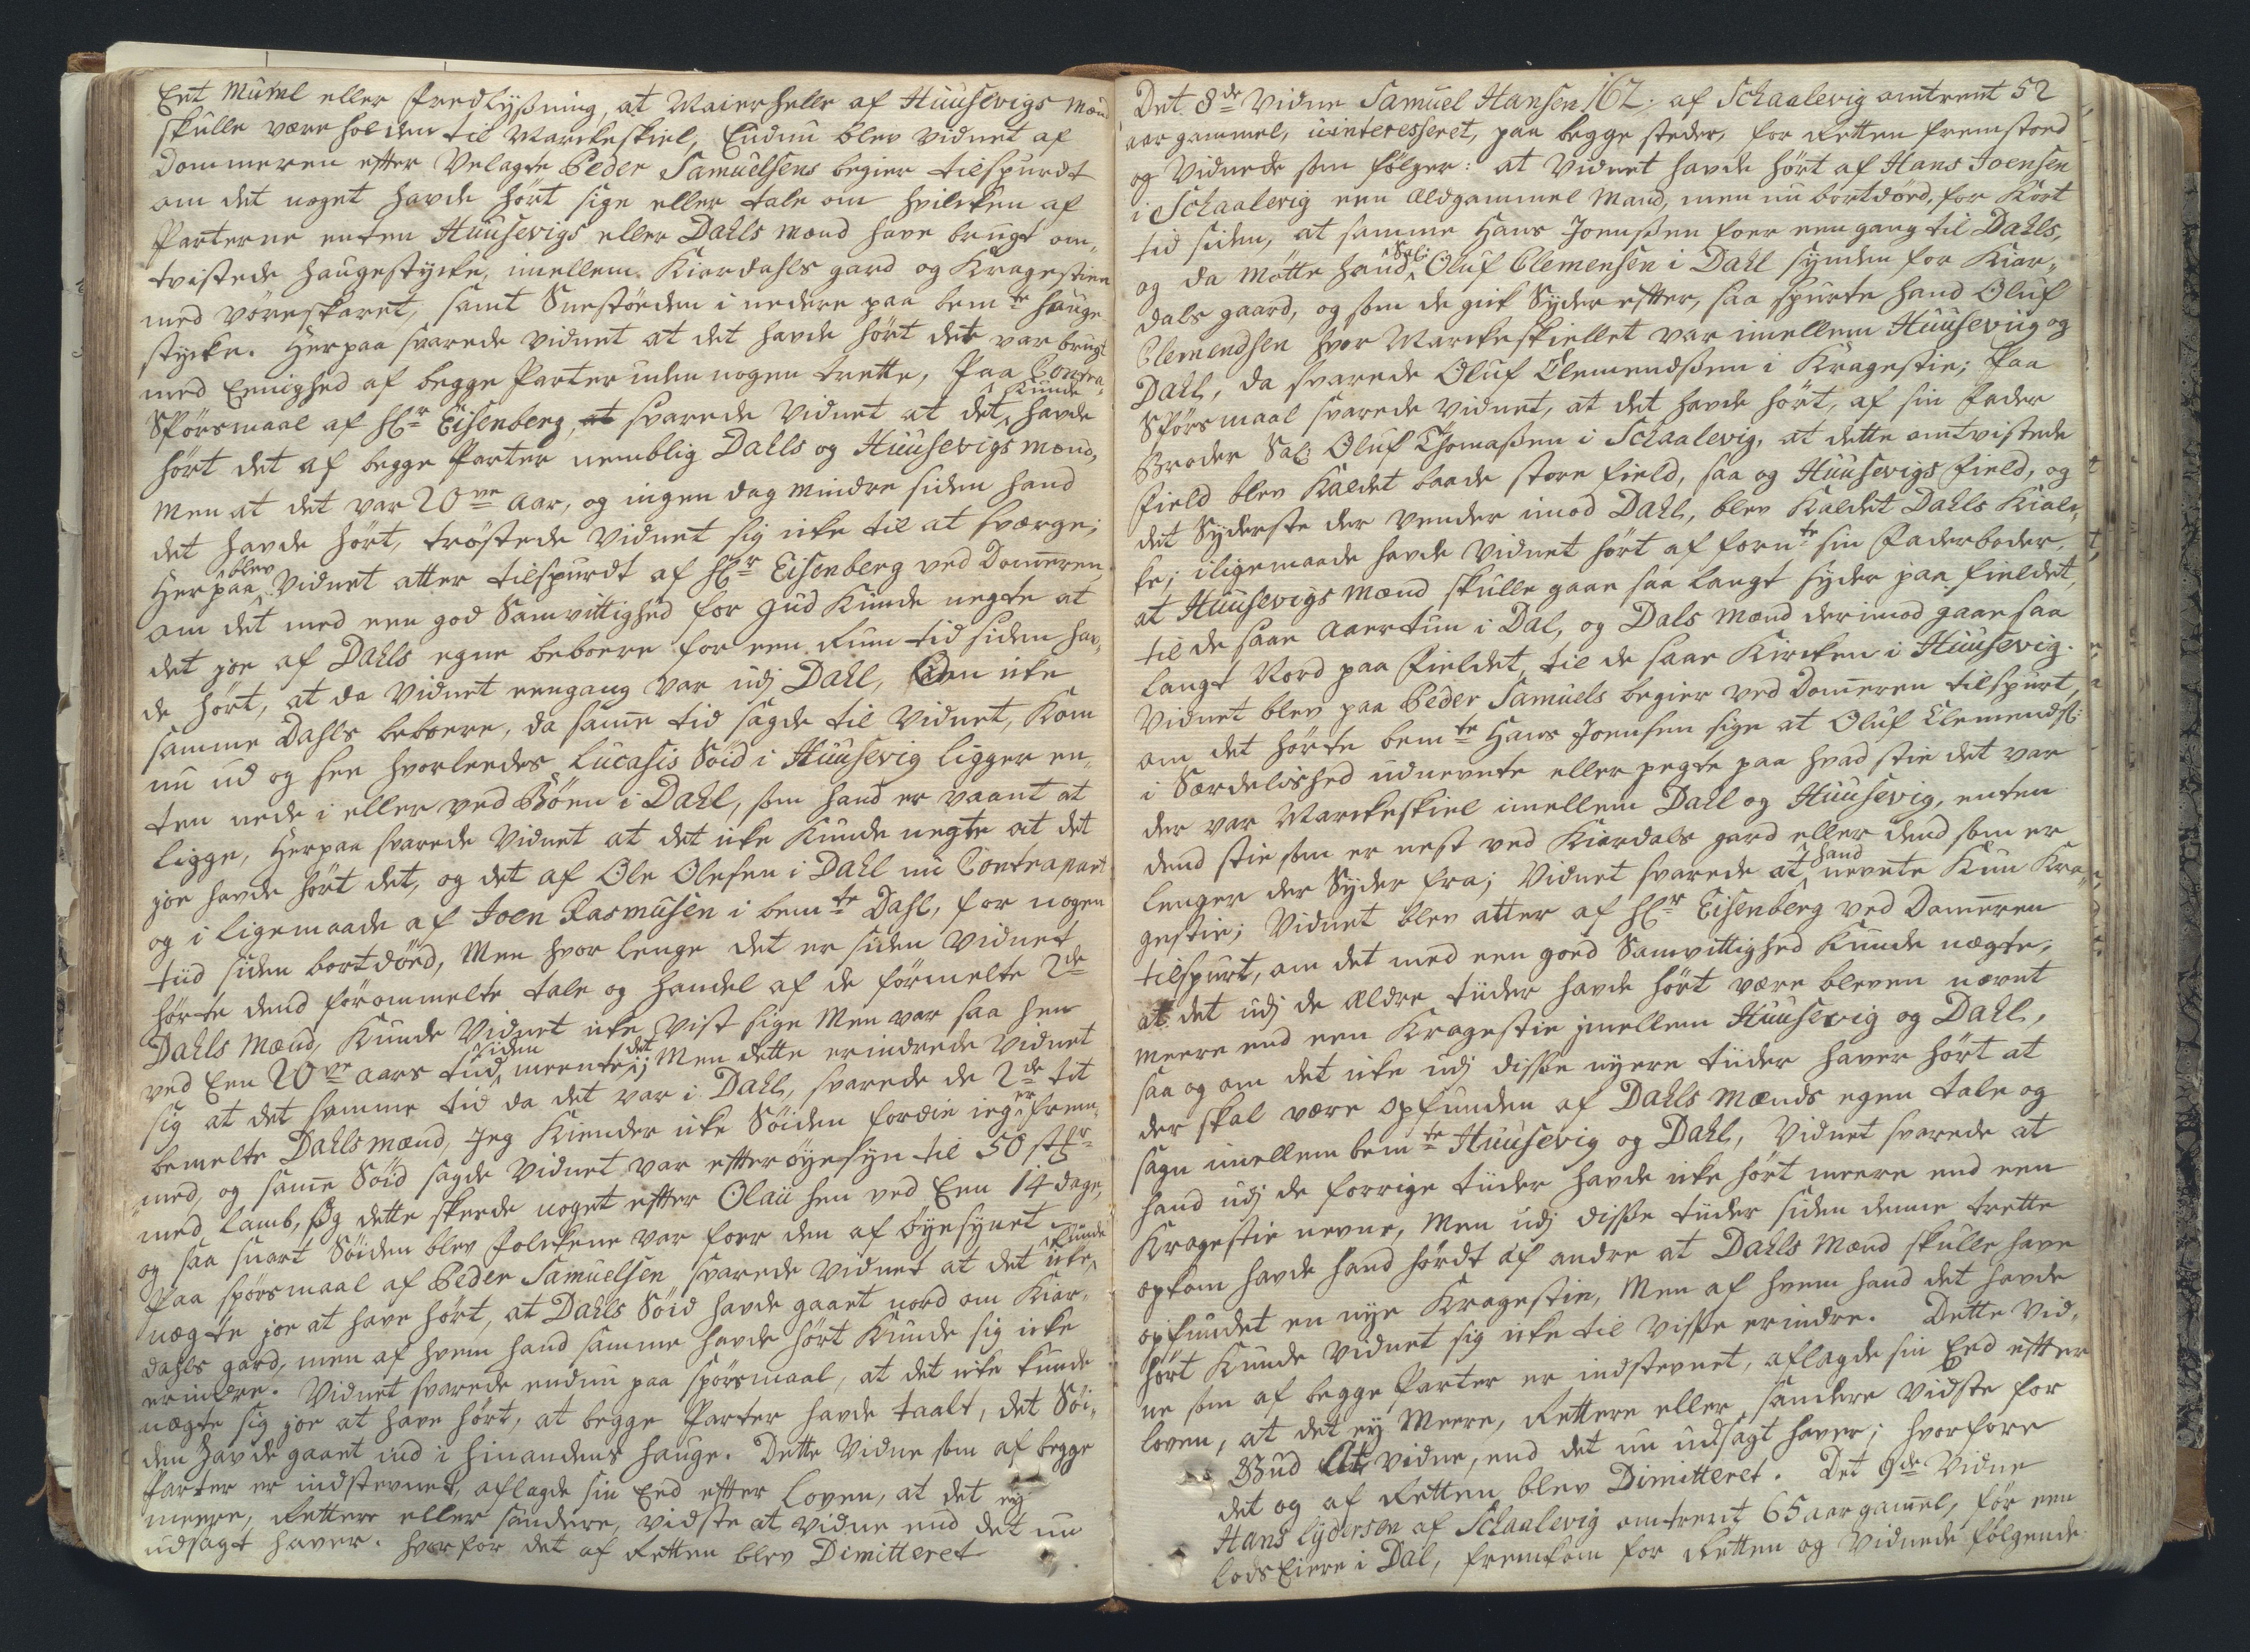 Ent Mumel eller fredlÿsning, at Maierhelle af Huusevigs Mænd
skulle være holden til Marckeskiel, Endnu blev vidnet af
Dommeren efter Velagte Peder Samuelsens begier tilspurdt
om det noget havde hört sige eller tale om hvilcken af
Parterne enten Huusevigs eller Dahls mænd have brugt om-
tvistede haugestÿcke, imellem Kiordahls gard og Kragestien
med vöreskaret, samt Snestöeden i nedere paa bemte hauge
stÿcke. Herpaa svarede vidnet at det havde hört det var brugt
med Eenighed af begge Parter uden nogen trette, Paa Contra
Spörsmaal af Hr Eisenberg, at svarede Vidnet at det Kunde havde
hört det af begge Parter nemblig Dahls og Huusevigs mænd,
Men at det var 20ve aar, og ingen dag mindre siden hand
det havde hört, tröstede vidnet sig icke til at sværge;
Herpaa blev Vidnet atter tilspurdt af Hr Eisenberg ved Domeren
om det med een god Samvittighed for Gud Kunde negte at
det joe af Dahls egne beboere for een Rum tid siden hav-
de hört, at da Vidnet eengang var udj Dahl, Om icke
samme Dahls beboere, da same tid sagde til Vidnet, Kom
nu ud og see hvorleedes Lucasis Söid i Huusevig ligger en-
ten nede i eller ved Böen i Dahl, som hand er vaant at
ligge, Herpaa svarede Vidnet at det icke Kunde negte at det
joe havde hört det, og det af Ole Olesen i Dahl nu Contrapart
og i ligemaade af Joen Rasmusen i bemte Dahl, for nogen
tiid siden bortdöed, Men hvor lenge det er siden Vidnet
hörte dend förommelte tale og handel af de förmelte 2de
Dahls Mænd, Kunde Vidnet icke Vist sige Men var saa hen
ved Een 20ve aars tiid siden meente det; Men dette erindrede Vidnet
sig at det samme tid da det var i Dahl, svarede de 2de tit
bemelte Dahls mænd, Jeg Kiender icke Söiden fordie ieg er frem-
med, og same Söid sagde Vidnet var efter öyesyn til 50 stkr
med Lamb, Og dette skeede noget efter Olaii hen ved Een 14 dage,
og saa snart Söiden blev Folckene var foer den af öyesynet
Paa spörsmaal af Peder Samuelsen svarede Vidnet at det icke Kunde
nægte joe at have hört, at Dahls Söid havde gaaet nord om Kior-
dahls gard, men af hvem hand samme havde hört Kunde sig icke
erindre. Vidnet svarede endnu paa spörsmaal, at det icke kunde
nægte sig joe at have hört, at begge Parter havde taalt, det Söi-
den havde gaaet ind i hinandens hauge. Dette Vidne som af begge
Parter er indstevnet, aflagde sin Eed efter Loven, at det eÿ
meere, Rettere eller sandere, vidste at vidne end det nu
udsagt haver. hvorfor det af Retten blev Dimitteret
Det 8de Vidne Samuel Hansen 162. af Schaalevig omtrent 52
aar gammel, uinteresseret, paa begge steder, for Retten fremstoed
og Vidnede som fölger: at Vidnet havde hört af Hans Joensen
i Schaalevig een Ældgammel Mand, men nu bortdöed, for Kort
tid siden, at samme Hans Joensen foer een gang til Dahls,
og da mötte hand Sal: Oluf Clemensen i Dahl sÿnden for Kior-
dals gaard, og som de gick Sÿder efter, saa spurte hand Oluf
Clemendsen hvor Marckeskiellet var imellem Huusevig og
Dahl, da svarede Oluf Clemendsen i Kragestie; Paa
Spörsmaal svarede Vidnet, at det havde hört, af sin Fader
Broder Sal: Oluf Thomasen i Schaalevig, at dette omtvistede
Field blev Kaldet baade store field, saa og Huusevigs Field, og
det Sÿderste der vender imod Dahl, blev Kaldet Dahls Kial-
ke; iligemaade havde Vidnet hört af fornte sin Faderbroder,
at Huusevigs Mænd skulle gaae saa langt sÿder paa fieldet,
til de saae Aaertun i Dal, og Dals Mænd derimod gaae saa
langt Nord paa Fieldet, til de saae Kircken i Huusevig.
Vidnet blev paa Peder Samuels begier ved Domeren tilspurt,
om det hörte bemte Hans Joensen sige at Oluf Clemends:
i Særdelished udnevnte eller pegte paa hvad stie det var
der var Marckeskiel imellem Dahl og Huusevig, enten
dend stie som er nest ved Kiordals gard eller dend som er
lenger der Sÿder fra; Vidnet svarede at hand nevnte Kun Kra-
gestie; Vidnet blev atter af Hr Eisenberg ved Domeren
tilspurt, om det med een goed Samvittighed Kunde nægte,
at det udj de ældre tiider havde hört være bleven nævnt
meere end een Kragestie imellem Huusevig og Dahl,
saa og om det icke udj disse nyere tiider haver hört at
der skal være opfunden af Dahls Mænds egen tale og
sagn imellem bemte Huusevig og Dahl, Vidnet svarede at
hand udj de forrige tiider havde icke hört meere end een
Kragestie nevne, Men udj disse tiider siden denne trette
opkom havde hand hördt af andre at Dahls Mænd skulle have
opfundet en nye Kragestie, Men af hvem hand det havde
hört Kunde Vidnet sig icke til Visse erindre. Dette Vid-
ne som af begge Parter er indstevnet, aflagde sin Eed efter
Loven, at det eÿ Meere, Rettere eller sandere vidste for
Gud At vidne, end det nu udsagt haver; hvorfore
det og af Retten blev Dimitteret. Det 9de Vidne
Hans Lÿdersen af Schaalevig omtrent 65 aar gamel, för een
Lods Eiere i Dal, fremkom for Retten og Vidnede fölgende